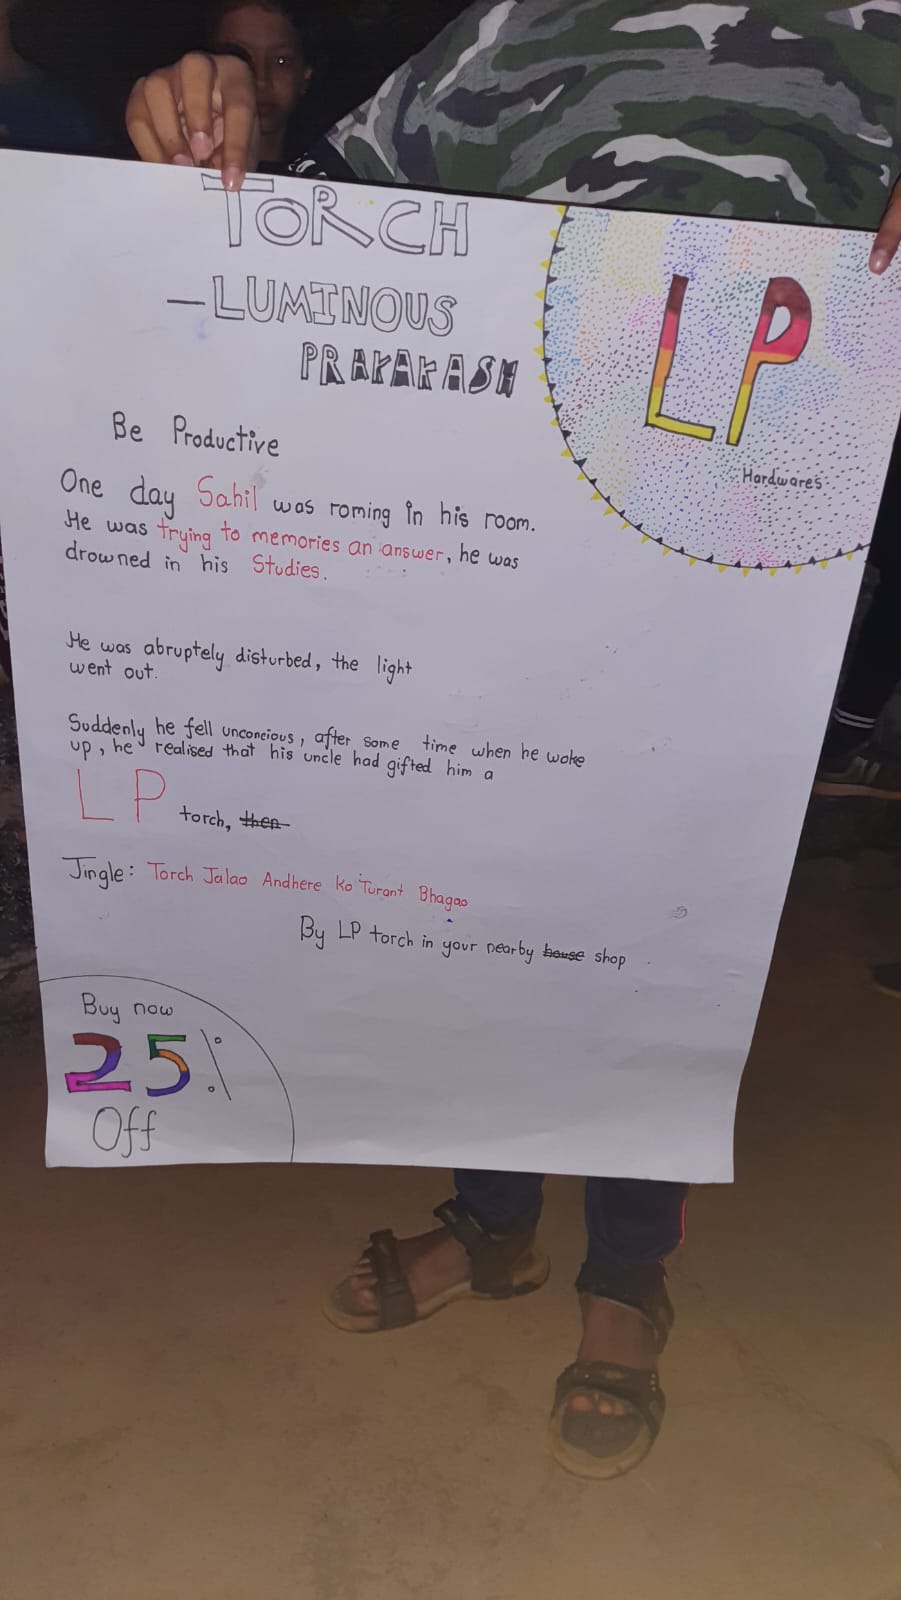 TORCH
- LUMINOUS
PRAKAKASH
LP
Hardwares
Be Productive
One day Sahil was roming in his room.
He was trying to memories an answer, he was
drowned in his Studies.
He was abruptely disturbed, the light
went out.
Suddenly he fell unconcious, after some time when he woke
up, he realised that his uncle had gifted him a
LP torch, then
Jingle: Torch Jalao Andhere Ko Turant Bhagao
By LP torch in your nearby house shop
Buy now
25%
Off